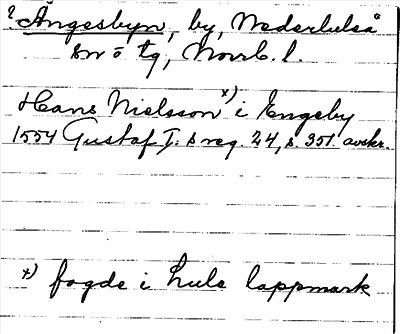 ? Ångesbyn, by, Nederluleå
sn o tg, Norrb. l.
Hans Nielsson x) i Engeby
1554 Gustaf I:s reg. 24, s. 351. avskr.
x) fogde i Lule lappmark